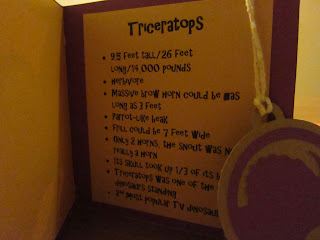 Triceratops
• 9.5 Feet tall/26 Feet
long/14,000 pounds
• Herbivore
• Massive brow horn could be was
long as 3 Feet
• Parrot-like beak
• Frill could be 7 Feet wide
• Only 2 horns, the snout was no
really a horn
• Its skull took up 1/3 of its b
• Triceratops was one of the
dinosaurs standing
• 2nd most popular TV dinosau